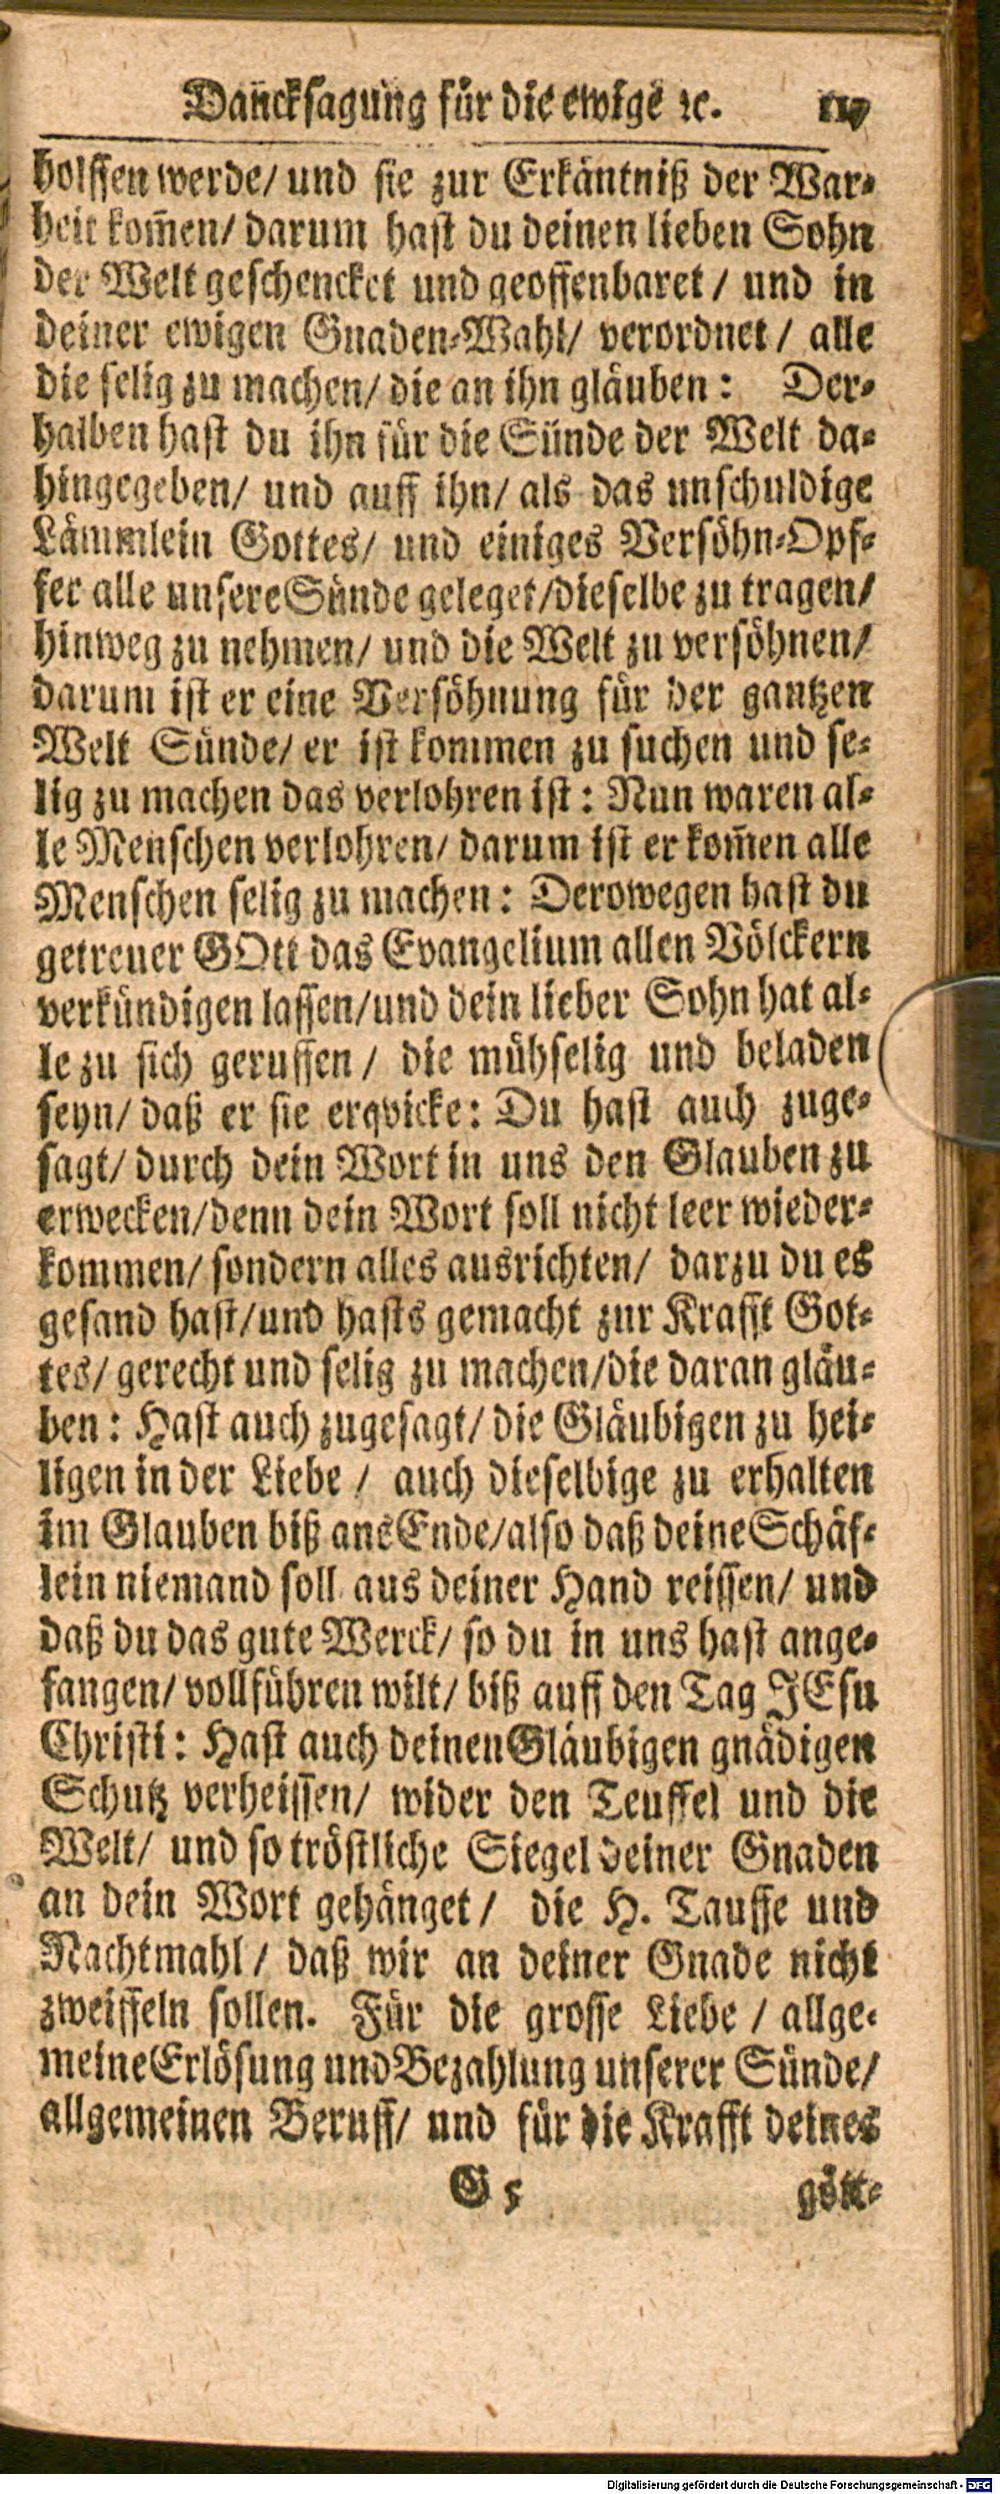 Dañcksagung für die ewige ꝛc.
holffen werde/ und sie zur Erkäntniß der War-
heit kom̃en/ darum hast du deinen lieben Sohn
der Welt geschencket und geoffenbaret / und in
deiner ewigen Gnaden-Wahl/ verordnet / alle
die selig zu machen/ die an ihn gläuben: Der-
halben hast du ihn für die Sünde der Welt da-
hingegeben/ und auff ihn/ als das unschuldige
Lämmlein Gottes/ und einiges Versöhn-Opf-
fer alle unsere Sünde geleget/dieselbe zu tragen/
hinweg zu nehmen/ und die Welt zu versöhnen/
darum ist er eine Versöhnung für der gantzen
Welt Sünde/ er ist kommen zu suchen und se-
lig zu machen das verlohren ist: Nun waren al-
le Menschen verlohren/ darum ist er kom̃en alle
Menschen selig zu machen: Derowegen hast du
getreuer GOtt das Evangelium allen Völckern
verkündigen lassen/und dein lieber Sohn hat al-
le zu sich geruffen / die mühselig und beladen
seyn/ daß er sie erqvicke: Du hast auch zuge-
sagt/ durch dein Wort in uns den Glauben zu
erwecken/denn dein Wort soll nicht leer wieder-
kommen/ sondern alles ausrichten/ darzu du es
gesand hast/und hasts gemacht zur Krafft Got-
tes/ gerecht und selig zu machen/die daran gläu-
ben: Hast auch zugesagt/ die Gläubigen zu hei-
ligen in der Liebe / auch dieselbige zu erhalten
im Glauben biß ans Ende/also daß deine Schäf-
lein niemand soll aus deiner Hand reissen/ und
daß du das gute Werck/ so du in uns hast ange-
fangen/ vollführen wilt/ biß auff den Tag JEsu
Christi: Hast auch deinen Gläubigen gnädigen
Schutz verheissen/ wider den Teuffel und die
Welt/ und so tröstliche Siegel deiner Gnaden
an dein Wort gehänget / die H. Tauffe und
Nachtmahl / daß wir an deiner Gnade nicht
zweiffeln sollen. Für die grosse Liebe / allge-
meine Erlösung und Bezahlung unserer Sünde/
allgemeinen Beruff/ und für die Krafft deines
G 5 gött-
Digitalisierung gefördert durch die Deutsche Forschungsgemeinschaft - DFG